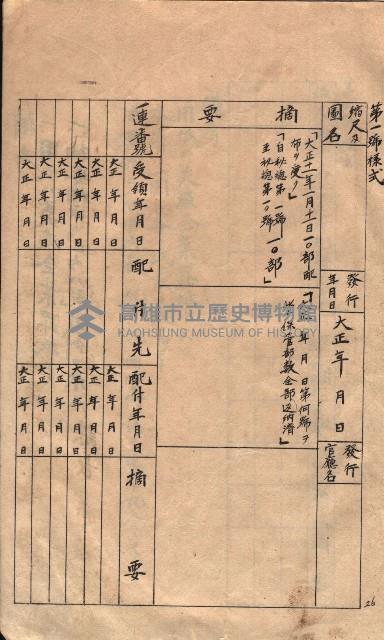 第一號樣式
縮尺及圖名
發行年月日
大正 年 月 日
發行官廳名
摘要
「大正十一年一月十一日一〇部配
布ヲ受ク」
「自秋總第一號
至秋總第一〇號 一〇部」
「大正 年 月 日第何號ヲ
以保管部數全部返納濟」
一連番號
受領年月日
配付先
配付年月日
摘要
大正 年 月 日
大正 年 月 日
大正 年 月 日
大正 年 月 日
大正 年 月 日
大正 年 月 日
大正 年 月 日
大正 年 月 日
大正 年 月 日
大正 年 月 日
大正 年 月 日
大正 年 月 日
高雄市立歷史博物館
KAOHSIUNG MUSEUM OF HISTORY
26